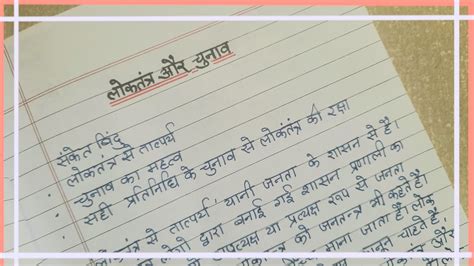 लोकतंत्र और चुनाव
संकेत बिंदु
लोकतंत्र से तात्पर्य
चुनाव का महत्व
सही प्रतिनिधि के चुनाव से लोकतंत्र की रक्षा
लोकतंत्र से तात्पर्य यानी जनता के शासन से है।
लोगो द्वारा बनाई गई शासन प्रणाली का
अप्रत्यक्ष या प्रत्यक्ष रूप से जनता
को जनतन्त्र भी कहते हैं।
माना जाता है। लोक
चाहते हैं,